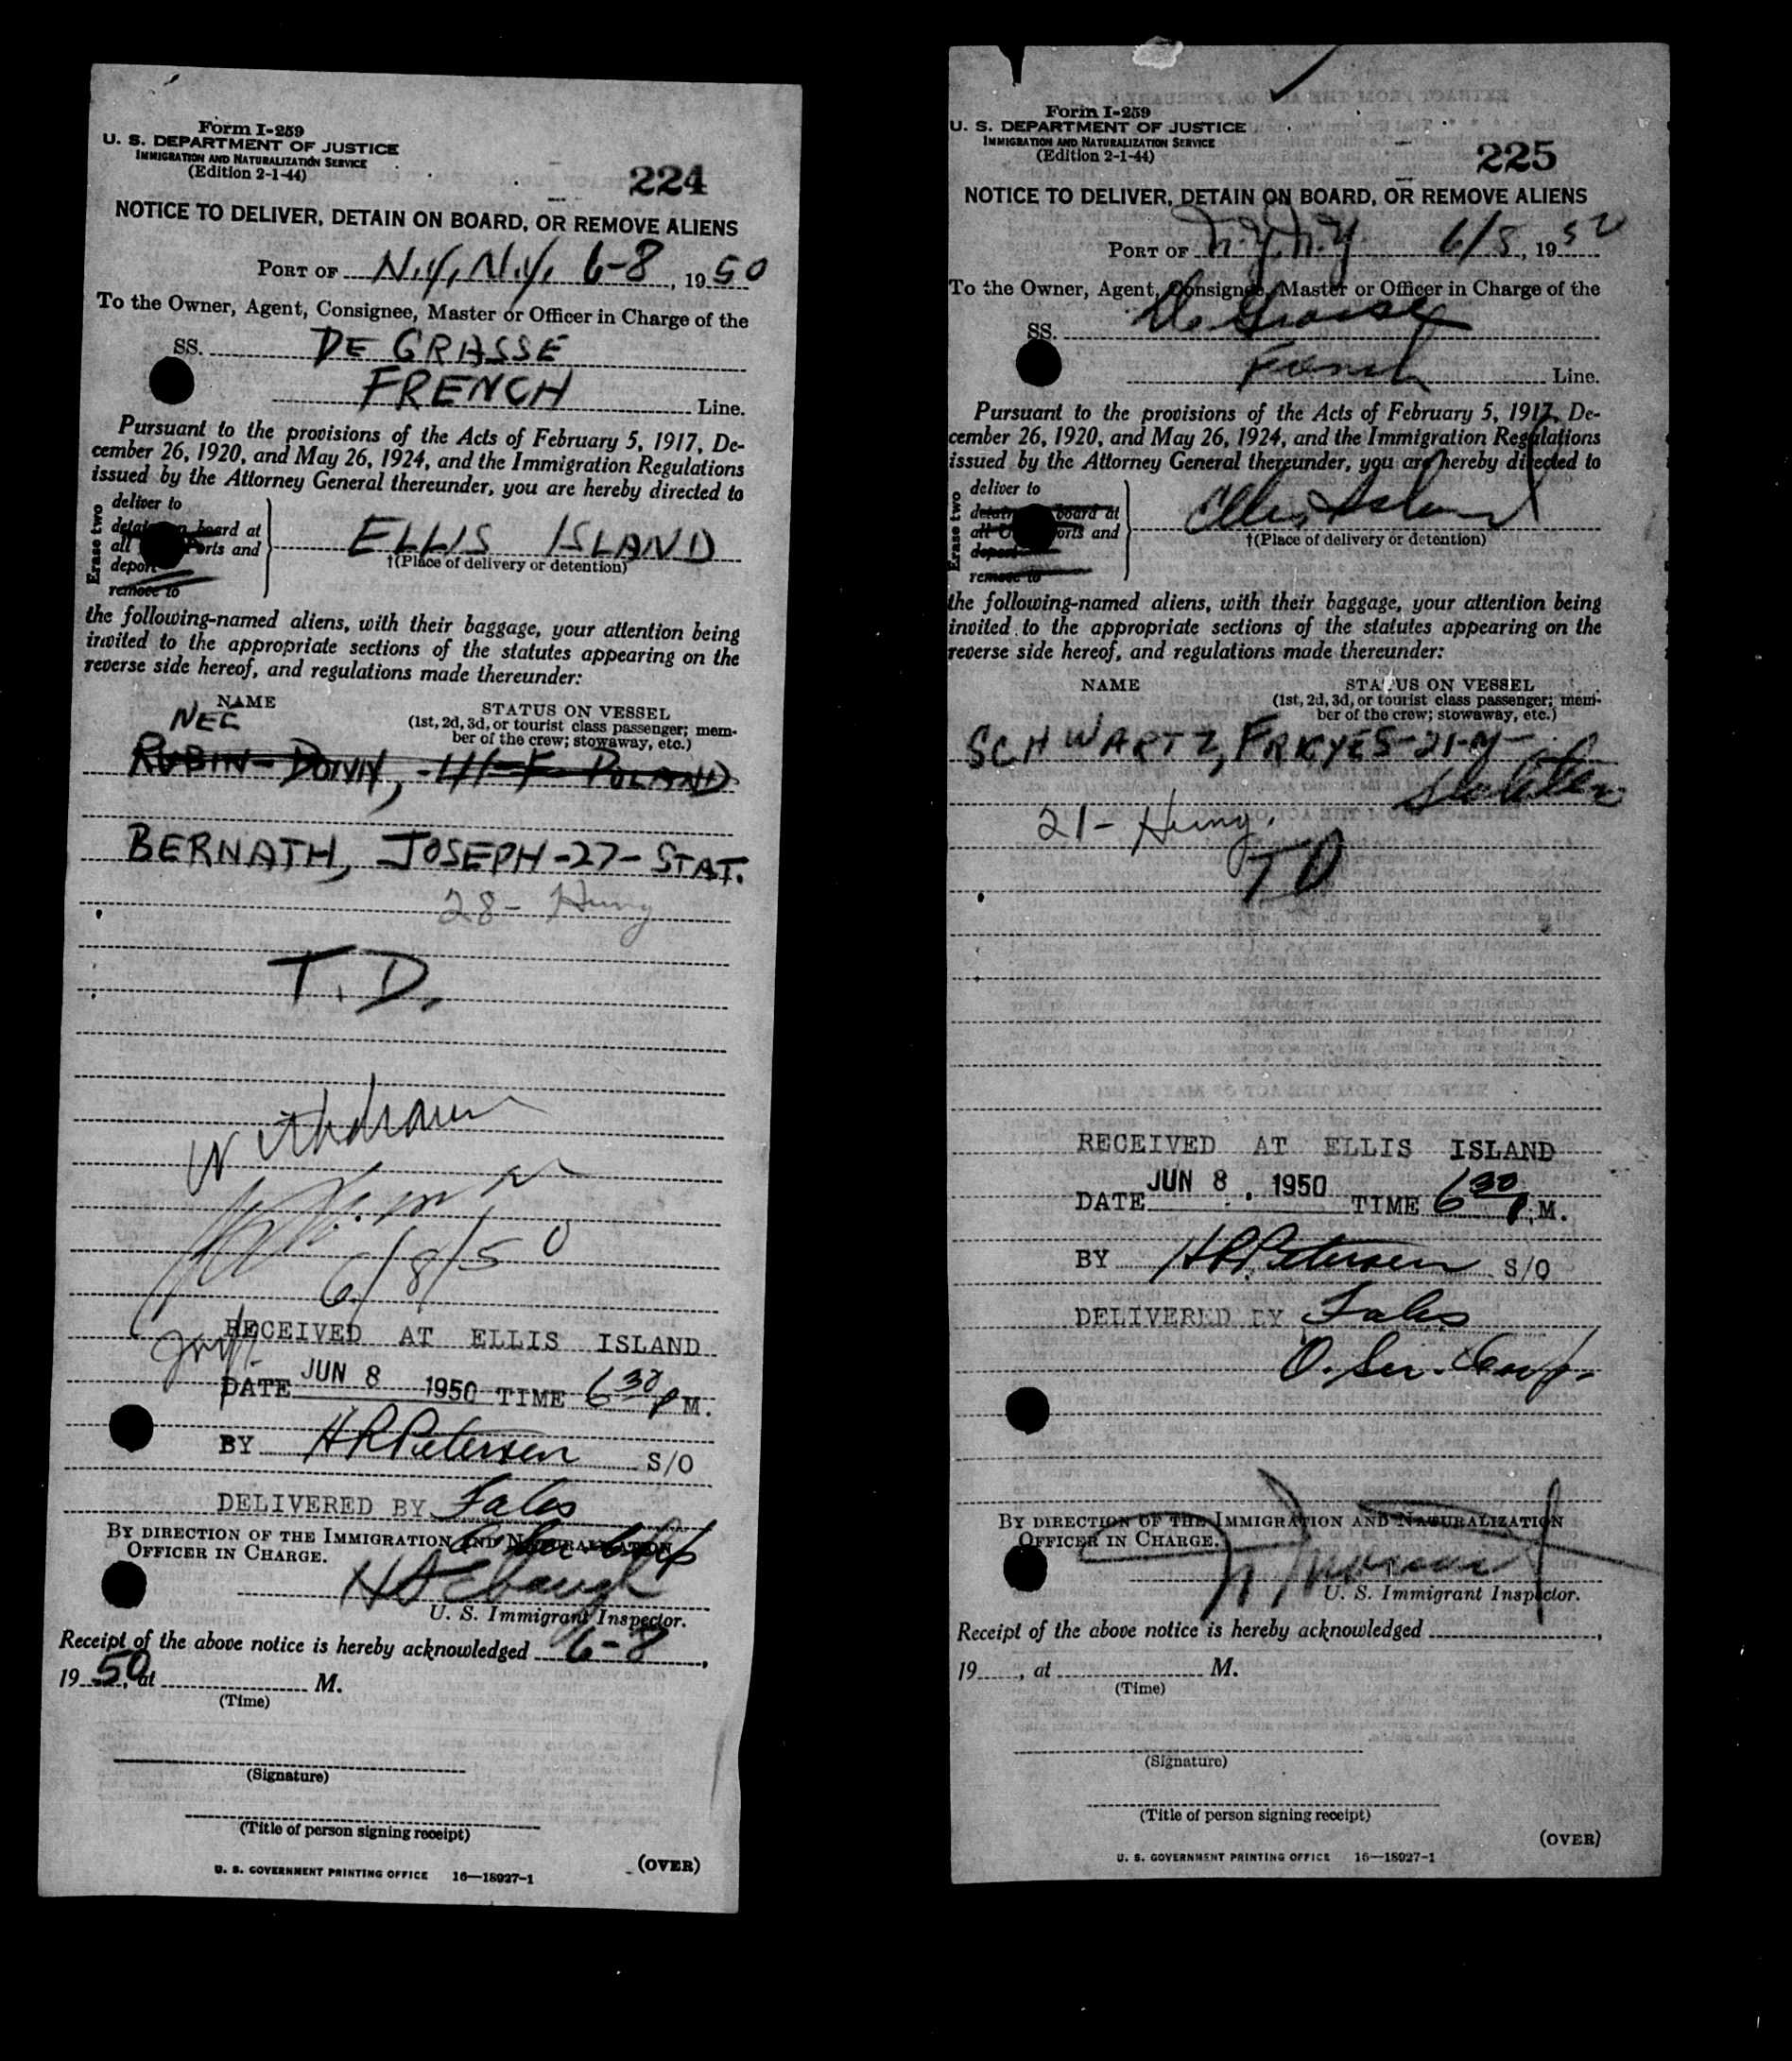 Form I-259
U. S. DEPARTMENT OF JUSTICE
IMMIGRATION AND NATURALIZATION SERVICE
(Edition 2-1-44)
224
NOTICE TO DELIVER, DETAIN ON BOARD, OR REMOVE ALIENS
PORT OF N.Y, N.Y, 6-8, 1950
To the Owner, Agent, Consignee, Master or Officer in Charge of the
SS. DE GRASSE
FRENCH Line.
Pursuant to the provisions of the Acts of February 5, 1917, De-
cember 26, 1920, and May 26, 1924, and the Immigration Regulations
issued by the Attorney General thereunder, you are hereby directed to
Erase two
deliver to
board at
all and
deport
remove to
ELLIS ISLAND
†(Place of delivery or detention)
the following-named aliens, with their baggage, your attention being
invited to the appropriate sections of the statutes appearing on the
reverse side hereof, and regulations made thereunder:
NAME
STATUS ON VESSEL
(1st, 2d, 3d, or tourist class passenger; mem-
ber of the crew; stowaway, etc.)
NEC
RUBIN- POLAND
BERNATH, JOSEPH-27-STAT.
28- Hung
T.D.
Withdrawn
6/8/50
RECEIVED AT ELLIS ISLAND
DATE JUN 8 1950 TIME 6 30 P M.
BY H R Petersen S/O
DELIVERED BY Fales
BY DIRECTION OF THE IMMIGRATION AND NATURALIZATION
OFFICER IN CHARGE.
U. S. Immigrant Inspector.
Receipt of the above notice is hereby acknowledged 6-8,
1950, at M.
(Time)
(Signature)
(Title of person signing receipt)
(OVER)
U. S. GOVERNMENT PRINTING OFFICE 16—18927-1
Form I-259
U. S. DEPARTMENT OF JUSTICE
IMMIGRATION AND NATURALIZATION SERVICE
(Edition 2-1-44)
225
NOTICE TO DELIVER, DETAIN ON BOARD, OR REMOVE ALIENS
PORT OF N.Y. N.Y. 6/8, 19
To the Owner, Agent, Consignee, Master or Officer in Charge of the
SS. De Grasse
French Line.
Pursuant to the provisions of the Acts of February 5, 1917, De-
cember 26, 1920, and May 26, 1924, and the Immigration Regulations
issued by the Attorney General thereunder, you are hereby directed to
Erase two
deliver to
board at
all and
deport
remove to
Ellis Island
†(Place of delivery or detention)
the following-named aliens, with their baggage, your attention being
invited to the appropriate sections of the statutes appearing on the
reverse side hereof, and regulations made thereunder:
NAME
STATUS ON VESSEL
(1st, 2d, 3d, or tourist class passenger; mem-
ber of the crew; stowaway, etc.)
SCHWARTZ, -21-M-
21- Hung.
TD
RECEIVED AT ELLIS ISLAND
DATE JUN 8, 1950 TIME 6 30 P.M.
BY H R Petersen S/O
DELIVERED BY Fales
BY DIRECTION OF THE IMMIGRATION AND NATURALIZATION
OFFICER IN CHARGE.
U. S. Immigrant Inspector.
Receipt of the above notice is hereby acknowledged ,
19 , at M.
(Time)
(Signature)
(Title of person signing receipt)
(OVER)
U. S. GOVERNMENT PRINTING OFFICE 16—18927-1